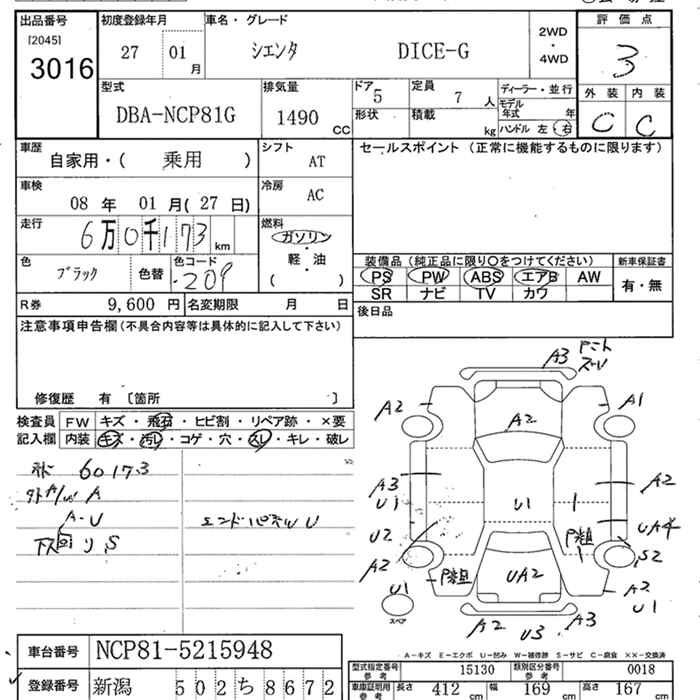 出品番号 初度登録年月 車名・グレード 2WD・4WD 評価点
[2045]
3016 27 01 月 シエンタ DICE-G 3
型式 排気量 ドア 5 定員 7 人 ディーラー・並行 外装 内装
DBA-NCP81G 1490 CC 形状 積載 kg モデル年式 年 C C
ハンドル 左・右
車歴 自家用・( 乗用 ) シフト AT セールスポイント (正常に機能するものに限ります)
車検 08 年 01 月(27 日) 冷房 AC
走行 6万0千173 km 燃料 ガソリン・軽・油 ( )
色 ブラック 色替 色コード 209
装備品 (純正品に限り○をつけてください) 新車保証書
PS PW ABS エアB AW 有・無
SR ナビ TV カワ
R券 9,600 円 名変期限 月 日 後日品
注意事項申告欄(不具合内容等は具体的に記入して下さい)
修復歴 有 〔箇所 〕
検査員 FW キズ・飛石・ヒビ割・リペア跡・×要
記入欄 内装 キズ・汚レ・コゲ・穴・スレ・キレ・破レ
60173
A
A-U エンドパネル U
下回リ S
A3
A2 A1
A2
A3 U1 U1 A2
U2 UA4
A2 P粗 P粗 S2
U1 UA2 A2 U1
スペア
A2 U3 A3
A-キズ E-エクボ U-凹み W-補修跡 S-サビ C-腐食 ××-交換済
車台番号 NCP81-5215948
型式指定番号 参考 15130 類別区分番号 参考 0018
登録番号 新潟 502ち8672
車庫証明用 参考 長さ 412 cm 幅 169 cm 高さ 167 cm